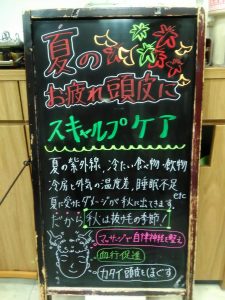 夏の
お疲れ頭皮に
スキャルプケア
夏の紫外線、冷たい食べ物・飲物
冷房と外気の温度差、睡眠不足
etc
夏に受けたダメージが秋に出てきます。
だから秋は抜け毛の季節!
マッサージで自律神経を整え
血行促進
カタイ頭皮をほぐす